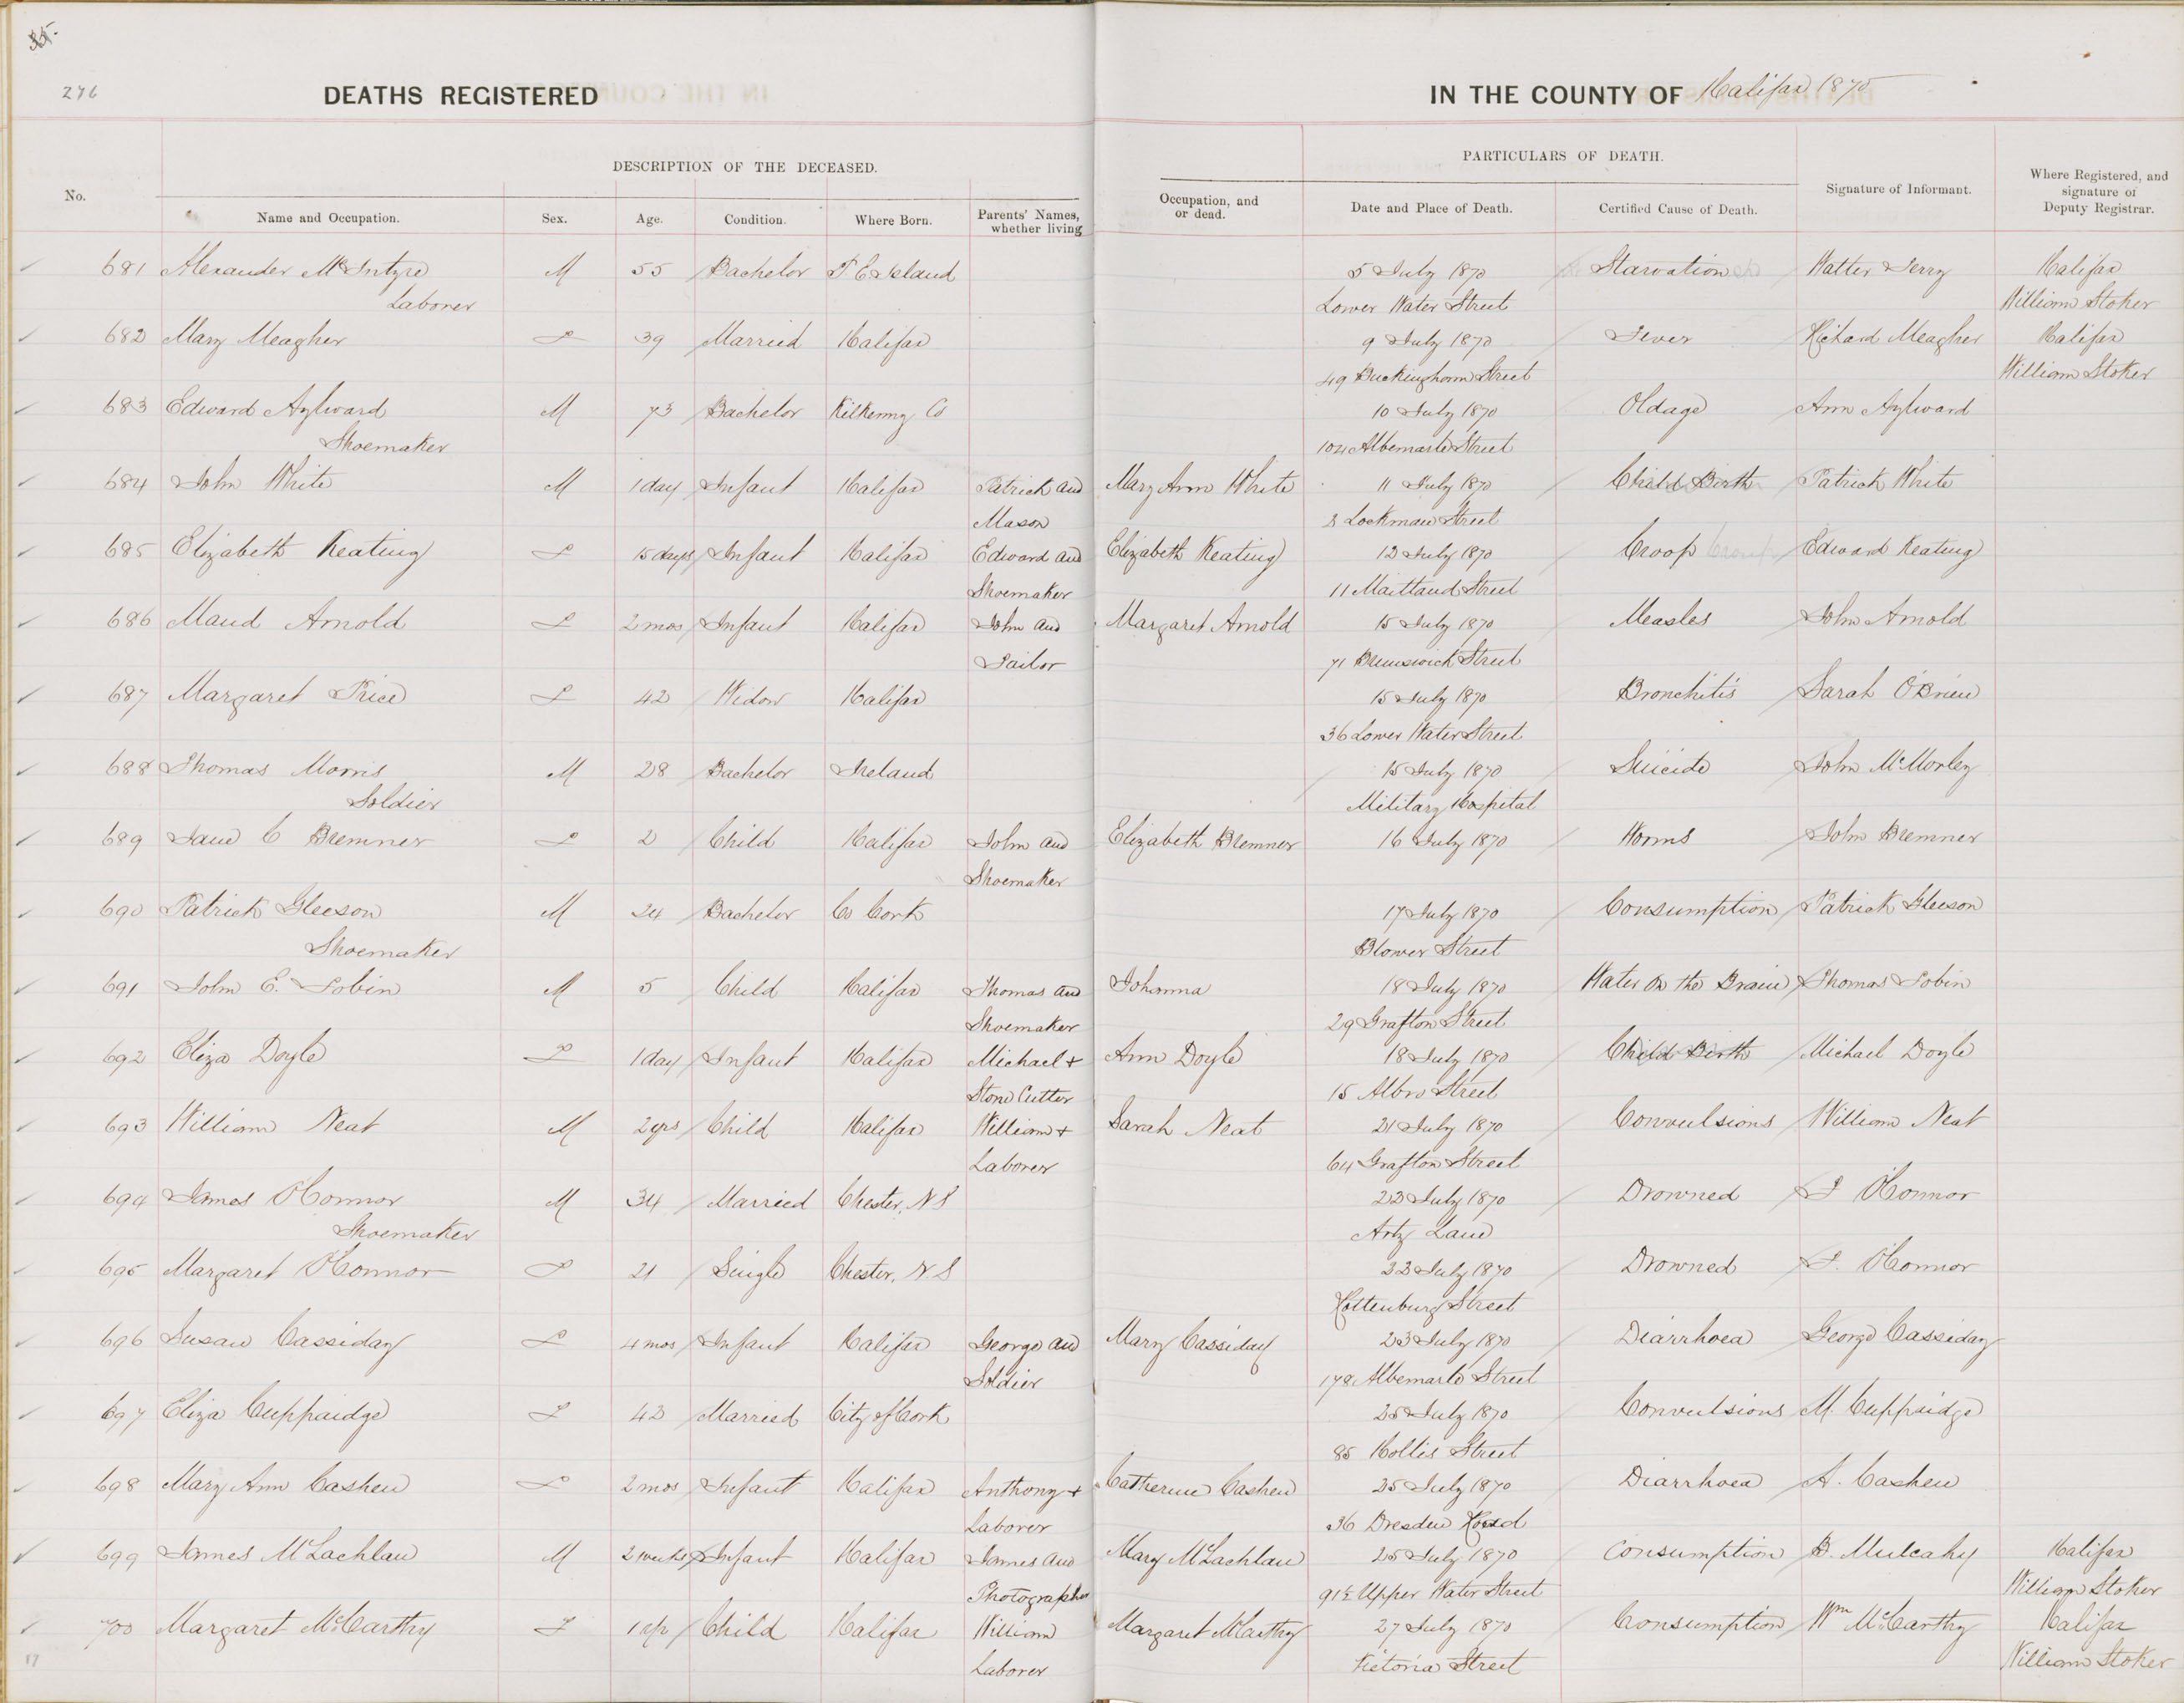 276
DEATHS REGISTERED IN THE COUNTY OF Halifax 1870
DESCRIPTION OF THE DECEASED. PARTICULARS OF DEATH.
No. Name and Occupation. Sex. Age. Condition. Where Born. Parents' Names, whether living Occupation, and or dead. Date and Place of Death. Certified Cause of Death. Signature of Informant. Where Registered, and signature of Deputy Registrar.
681 Alexander McIntyre M 55 Bachelor P E Island 5 July 1870 Starvation Walter Terry Halifax
Laborer Lower Water Street William Stoker
682 Mary Meagher F 39 Married Halifax 9 July 1870 Fever Richard Meagher Halifax
49 Buckingham Street William Stoker
683 Edward Aylward M 73 Bachelor Kilkenny Co 10 July 1870 Oldage Ann Aylward
Shoemaker 104 Albemarle Street
684 John White M 1 day Infant Halifax Patrick and Mary Ann White 11 July 1870 Child Birth Patrick White
Mason 8 Lockman Street
685 Elizabeth Keating F 15 days Infant Halifax Edward and Elizabeth Keating 12 July 1870 Croop Croup Edward Keating
Shoemaker 11 Maitland Street
686 Maud Arnold F 2 mos Infant Halifax John and Margaret Arnold 15 July 1870 Measles John Arnold
Tailor 71 Brunswick Street
687 Margaret Price F 42 Widow Halifax 15 July 1870 Bronchitis Sarah O'Brien
36 Lower Water Street
688 Thomas Morris M 28 Bachelor Ireland 15 July 1870 Suicide John McMorley
Soldier Military Hospital
689 Jane C Bremner F 2 Child Halifax John and Elizabeth Bremner 16 July 1870 Worms John Bremner
Shoemaker
690 Patrick Gleeson M 24 Bachelor Co Cork 17 July 1870 Consumption Patrick Gleeson
Shoemaker Blower Street
691 John E. Tobin M 5 Child Halifax Thomas and Johanna 18 July 1870 Water On the Brain Thomas Tobin
Shoemaker 29 Grafton Street
692 Eliza Doyle F 1 day Infant Halifax Michael + Ann Doyle 18 July 1870 Child Birth Michael Doyle
Stone Cutter 15 Albro Street
693 William Neat M 2 yrs Child Halifax William + Sarah Neat 21 July 1870 Convulsions William Neat
Laborer 64 Grafton Street
694 James O'Connor M 34 Married Chester, N S 22 July 1870 Drowned T O'Connor
Shoemaker Artz Lane
695 Margaret O'Connor F 21 Single Chester, N. S 22 July 1870 Drowned T. O'Connor
Rottenburg Street
696 Susan Cassiday F 4 mos Infant Halifax George and Mary Cassiday 23 July 1870 Diarrhoea George Cassiday
Soldier 178 Albemarle Street
697 Eliza Cuppaidge F 42 Married City of Cork 25 July 1870 Convulsions M. Cuppaidge
85 Hollis Street
698 Mary Ann Cashen F 2 mos Infant Halifax Anthony + Catherine Cashen 25 July 1870 Diarrhoea A. Cashen
Laborer 36 Dresden Road
699 James McLachlan M 2 weeks Infant Halifax James and Mary McLachlan 25 July 1870 Consumption B. Mulcahy Halifax
Photographer 91½ Upper Water Street William Stoker
700 Margaret McCarthy F Child Halifax William Margaret McCarthy 27 July 1870 Consumption Wm McCarthy Halifax
17 Laborer Victoria Street William Stoker